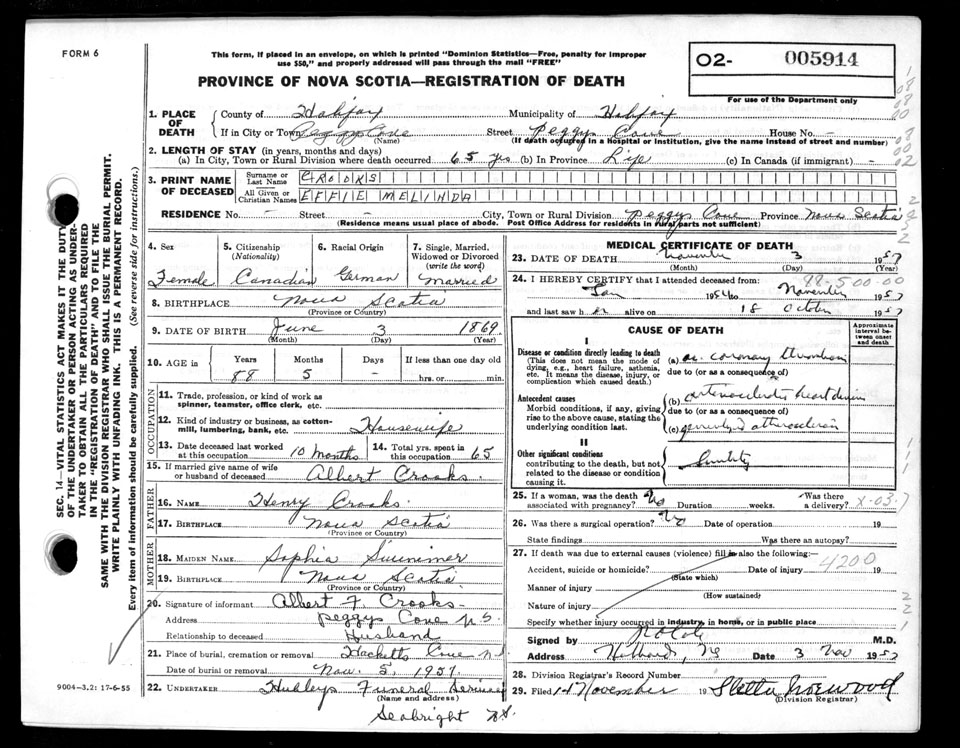 FORM 6
This form, if placed in an envelope, on which is printed "Dominion Statistics—Free, penalty for improper
use $50," and properly addressed will pass through the mail "FREE"
PROVINCE OF NOVA SCOTIA—REGISTRATION OF DEATH
O2- 005914
For use of the Department only
SEC. 14—VITAL STATISTICS ACT MAKES IT THE DUTY
OF THE UNDERTAKER OR PERSON ACTING AS UNDER-
TAKER TO OBTAIN ALL THE PARTICULARS REQUIRED
IN THE "REGISTRATION OF DEATH" AND TO FILE THE
SAME WITH THE DIVISION REGISTRAR WHO SHALL ISSUE THE BURIAL PERMIT.
WRITE PLAINLY WITH UNFADING INK. THIS IS A PERMANENT RECORD.
Every item of information should be carefully supplied. (See reverse side for instructions.)
1. PLACE OF DEATH
County of Halifax Municipality of Halifax
If in City or Town Peggys Cove Street Peggys Cove House No. -
(Name) (If death occured in a hospital or institution, give the name instead of street and number)
2. LENGTH OF STAY (in years, months and days)
(a) In City, Town or Rural Division where death occurred 65 yrs (b) In Province Life (c) In Canada (if immigrant) -
3. PRINT NAME OF DECEASED
Surname or Last Name CROOKS
All Given or Christian Names EFFIE MELINDA
RESIDENCE No. - Street - City, Town or Rural Division Peggys Cove Province Nova Scotia
(Residence means usual place of abode. Post Office Address for residents in rural parts not sufficient)
4. Sex 5. Citizenship 6. Racial Origin 7. Single, Married,
(Nationality) Widowed or Divorced
(write the word)
Female Canadian German Married
8. BIRTHPLACE Nova Scotia
(Province or Country)
9. DATE OF BIRTH June 3 1869
(Month) (Day) (Year)
10. AGE in Years Months Days If less than one day old
88 5 - hrs. or min.
OCCUPATION
11. Trade, profession, or kind of work as
spinner, teamster, office clerk, etc.
12. Kind of industry or business, as cotton-
mill, lumbering, bank, etc. Housewife
13. Date deceased last worked at this occupation 10 months
14. Total yrs. spent in this occupation 65
15. If married give name of wife
or husband of deceased Albert Crooks
FATHER
16. NAME Henry Crooks
17. BIRTHPLACE Nova Scotia
(Province or Country)
MOTHER
18. MAIDEN NAME Sophia
19. BIRTHPLACE Nova Scotia
(Province or Country)
20. Signature of informant Albert F. Crooks
Address Peggys Cove N.S.
Relationship to deceased Husband
21. Place of burial, cremation or removal Hacketts Cove N.S.
Date of burial or removal Nov. 5, 1957
22. UNDERTAKER Hubleys Funeral Service
(Name and address)
Seabright N.S.
9004-3.2: 17-6-55
MEDICAL CERTIFICATE OF DEATH
23. DATE OF DEATH November 3 1957
(Month) (Day) (Year)
88-500-00
24. I HEREBY CERTIFY that I attended deceased from:
Jan 1954 to November 1957
and last saw her alive on 18 October 1957
CAUSE OF DEATH
Approximate interval between onset and death
I
Disease or condition directly leading to death
(This does not mean the mode of
dying, e.g., heart failure, asthenia,
etc. It means the disease, injury, or
complication which caused death.)
(a) ac. coronary thrombosis
due to (or as a consequence of)
Antecedent causes
Morbid conditions, if any, giving
rise to the above cause, stating the
underlying condition last.
(b) arteriosclerotic heart disease
due to (or as a consequence of)
(c) generalized atherosclerosis
II
Other significant conditions
contributing to the death, but not
related to the disease or condition
causing it.
Senility
25. If a woman, was the death associated with pregnancy? No Duration weeks. Was there a delivery?
X-03.7
26. Was there a surgical operation? No Date of operation 19
State findings Was there an autopsy?
27. If death was due to external causes (violence) fill in also the following:
4200
Accident, suicide or homicide? Date of injury 19
(State which)
Manner of injury
(How sustained)
Nature of injury
Specify whether injury occurred in industry, in home, or in public place
Signed by M.D.
Address Hubbards, NS Date 3 Nov 1957
28. Division Registrar's Record Number
29. Filed 14 November 19 Norwood
(Division Registrar)